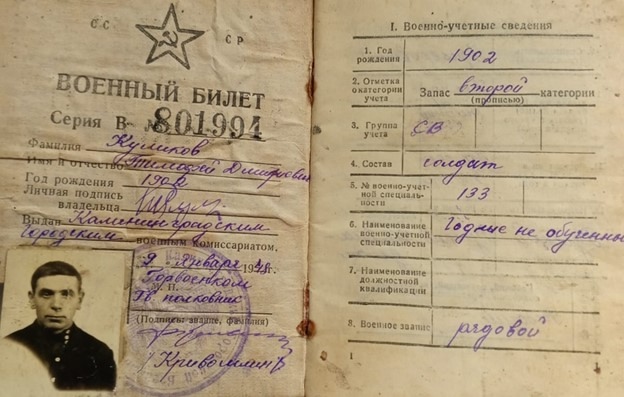 СС СР
ВОЕННЫЙ БИЛЕТ
Серия В- № 801994
Фамилия Куликов
Имя и отчество Тимофей Дмитриевич
Год рождения 1902
Личная подпись
владельца
Выдан Калининградским
Городским военным комиссариатом.
9 Января 194 г.
М. П. Горвоенком
Гв. полковник
(Подпись: звание, фамилия)
I. Военно-учетные сведения
1. Год рождения 1902
2. Отметка о категории учета Запас второй категории
(прописью)
3. Группа учета СВ
4. Состав солдат
5. № военно-учетной специальности 133
6. Наименование военно-учетной специальности Годные не обученные
7. Наименование должностной квалификации
8. Военное звание рядовой
1